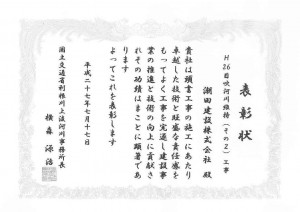 表彰状
H26日吹河川維持(その2)工事
潮田建設株式会社 殿
貴社は頭書工事の施工にあたり
卓越した技術と旺盛な責任感を
もってよく工事を完遂し建設事
業の推進と技術の向上に貢献さ
れその功績はまことに顕著であ
ります
よってこれを表彰します
平成二十七年七月十七日
国土交通省利根川上流河川事務所長
横森 源治